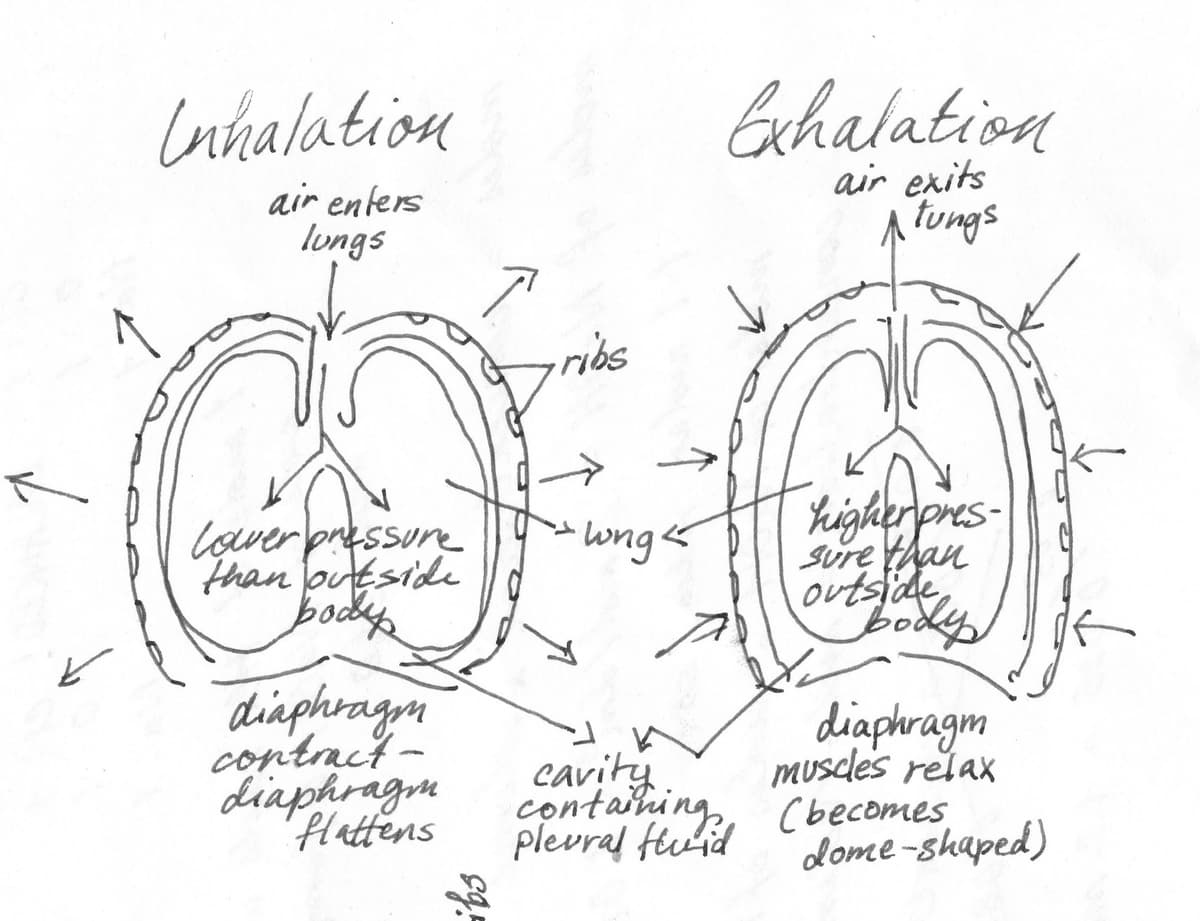 Inhalation
air enters
lungs
ribs
lower pressure
than outside
body
diaphragm
contract-
diaphragm
flattens
lung
cavity
containing
pleural fluid
Exhalation
air exits
lungs
higher pres-
sure than
outside
body
diaphragm
muscles relax
(becomes
dome-shaped)
ribs